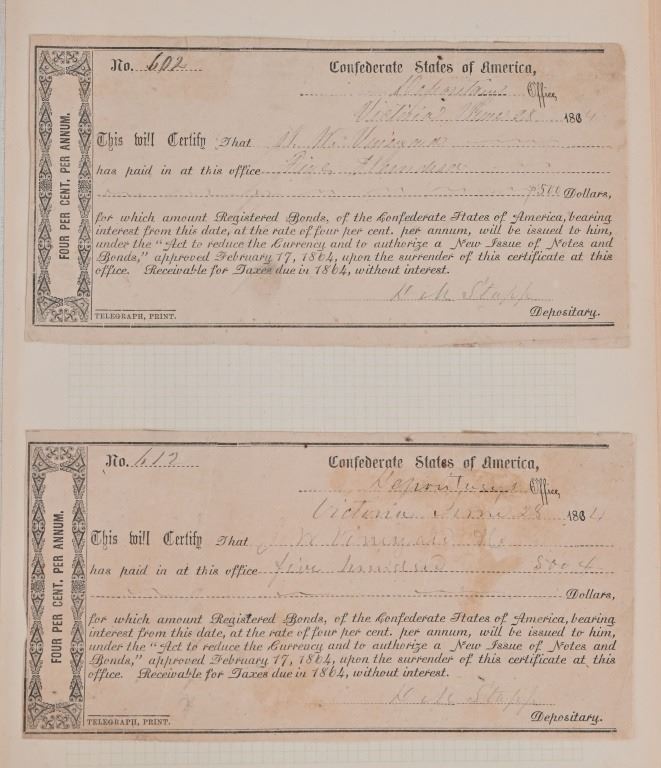 No. 602
Confederate States of America,
Office,
Victoria June 28 1864
This will Certify That
has paid in at this office Five Hundred
$500 Dollars,
for which amount Registered Bonds, of the Confederate States of America, bearing
interest from this date, at the rate of four per cent. per annum, will be issued to him,
under the "Act to reduce the Currency and to authorize a New Issue of Notes and
Bonds," approved February 17, 1864, upon the surrender of this certificate at this
office. Receivable for Taxes due in 1864, without interest.
D. M. Stapp
TELEGRAPH, PRINT.
Depositary.
FOUR PER CENT. PER ANNUM.
No. 612
Confederate States of America,
Office,
Victoria June 28 1864
This will Certify That
has paid in at this office five hundred
Dollars,
for which amount Registered Bonds, of the Confederate States of America, bearing
interest from this date, at the rate of four per cent. per annum, will be issued to him,
under the "Act to reduce the Currency and to authorize a New Issue of Notes and
Bonds," approved February 17, 1864, upon the surrender of this certificate at this
office. Receivable for Taxes due in 1864, without interest.
D. M. Stapp
TELEGRAPH, PRINT.
Depositary.
FOUR PER CENT. PER ANNUM.